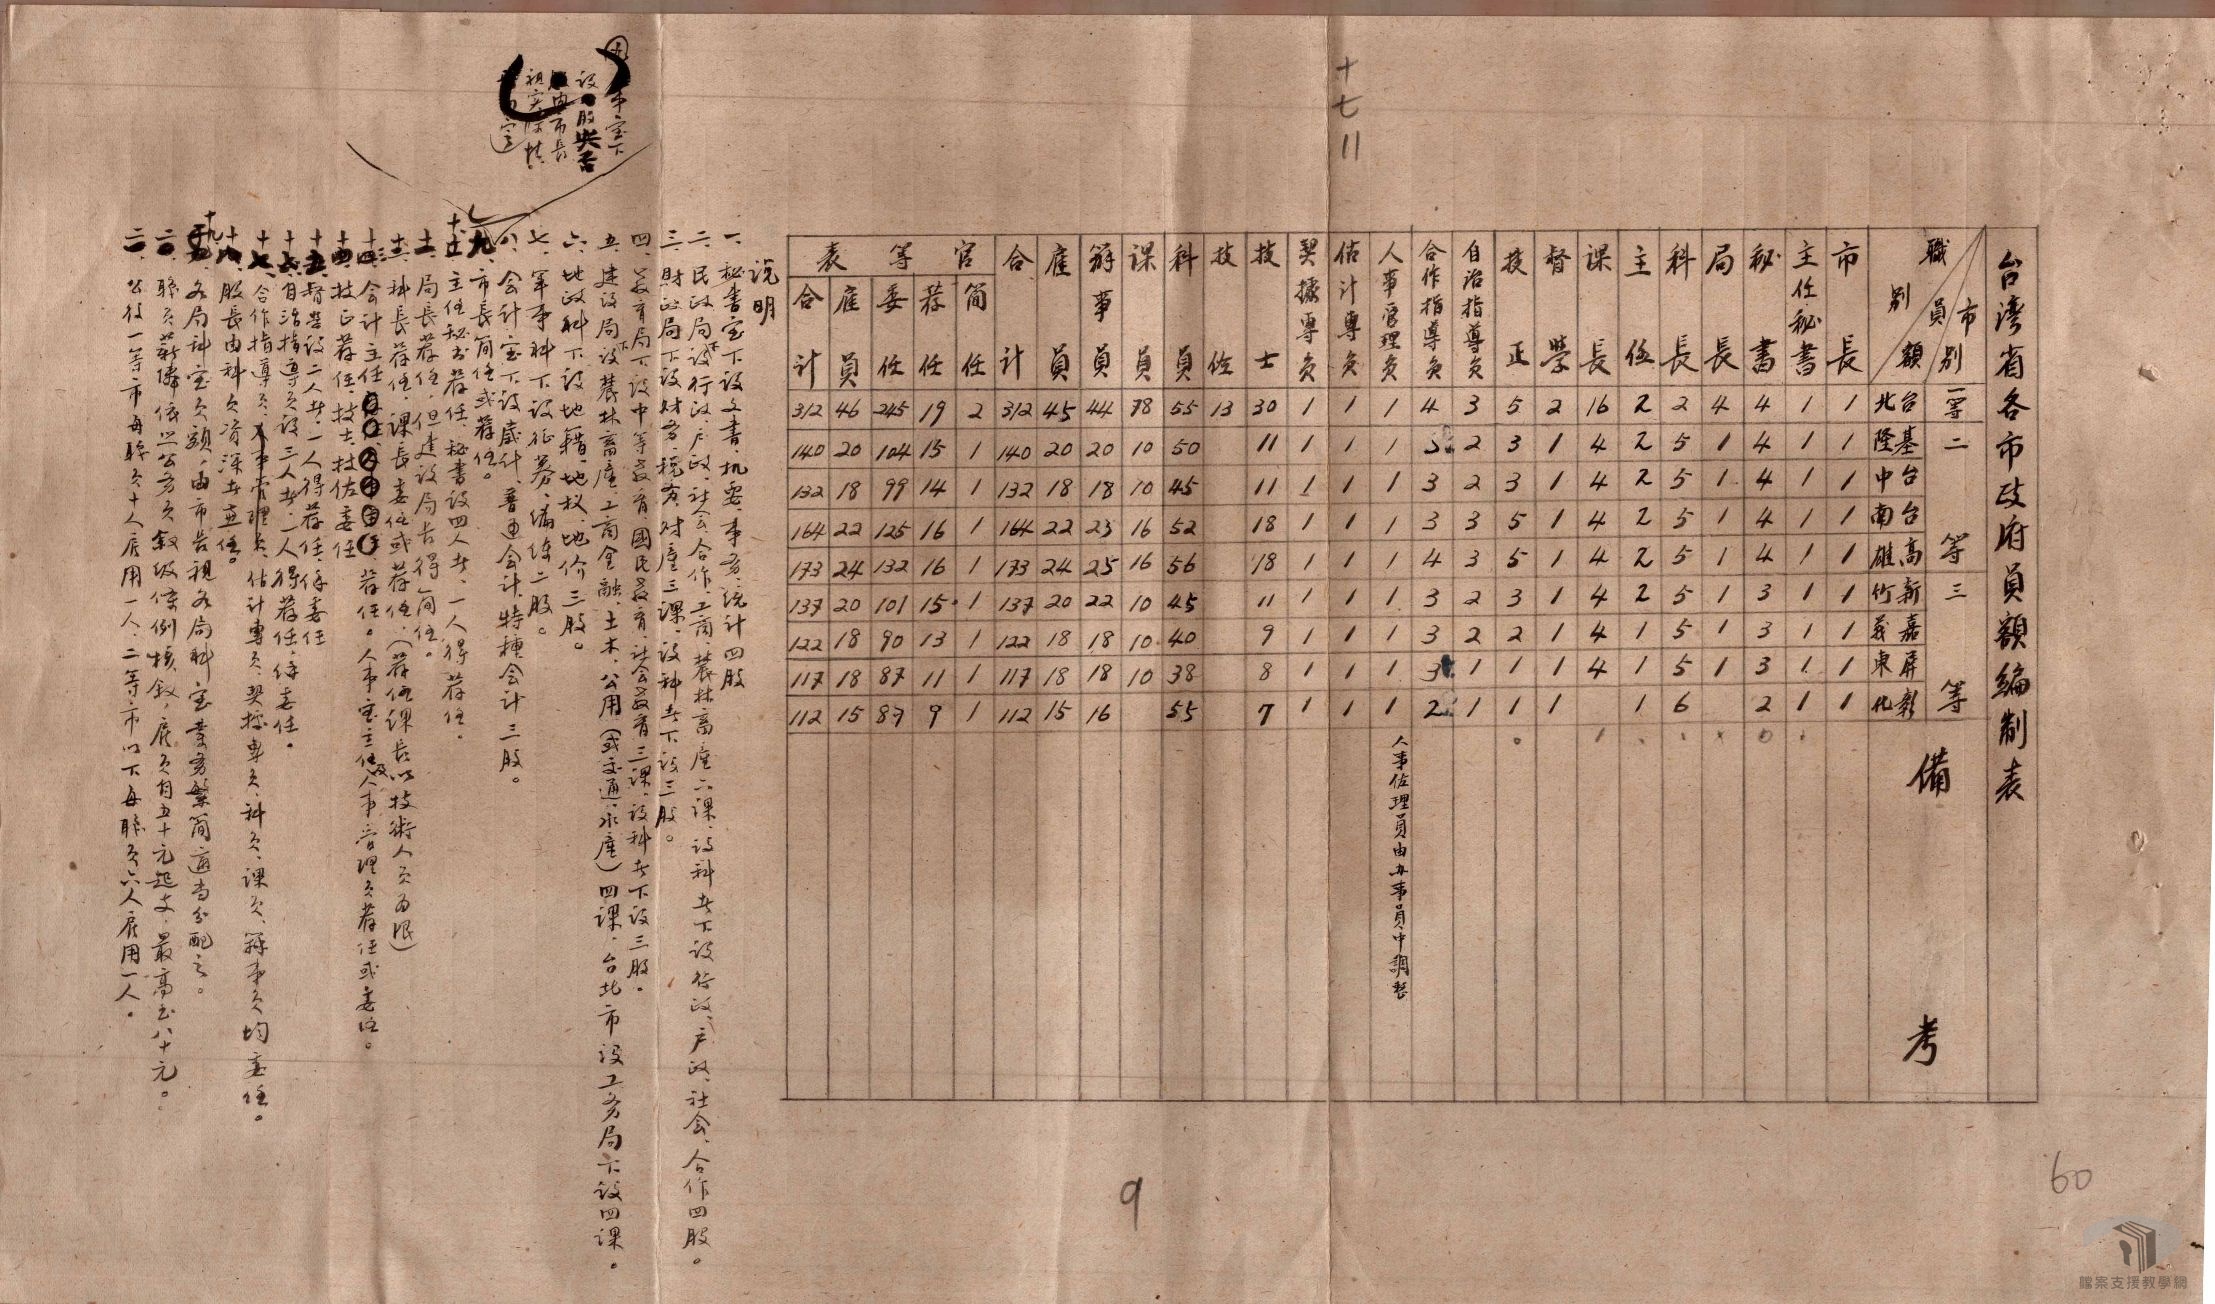 台灣省各市政府員額編制表
職別 員額 市別
一等 台北
二等 基隆 台中 台南 高雄
三等 新竹 嘉義 屏東 彰化
備考
市長 1 1 1 1 1 1 1 1 1
主任秘書 1 1 1 1 1 1 1 1 1
秘書 4 4 4 4 4 3 3 3 2
局長 4 1 1 1 1 1 1 1
科長 2 5 5 5 5 5 5 5 6
主任 2 2 2 2 2 2 1 1 1
課長 16 4 4 4 4 4 4 4
督學 2 1 1 1 1 1 1 1 1
技正 5 3 3 5 5 3 2 1 1
自治指導員 3 2 2 3 3 2 2 1 1
合作指導員 4 3 3 3 4 3 3 3 2
人事管理員 1 1 1 1 1 1 1 1 1 人事佐理員由办事員中調整
估計專員 1 1 1 1 1 1 1 1 1
契據專員 1 1 1 1 1 1 1 1 1
技士 30 11 11 18 18 11 9 8 7
技佐 13
科員 55 50 45 52 56 45 40 38 55
課員 78 10 10 16 16 10 10 10
辦事員 44 20 18 23 25 22 18 18 16
雇員 45 20 18 22 24 20 18 18 15
合計 312 140 132 164 173 137 122 117 112
官等表
簡任 2 1 1 1 1 1 1 1 1
荐任 19 15 14 16 16 15 13 11 9
委任 245 104 99 125 132 101 90 87 87
雇員 46 20 18 22 24 20 18 18 15
合計 312 140 132 164 173 137 122 117 112
十七 11
说明
一、秘書室下设文書、机要、事务、统计四股
二、民政局下设行政、户政、社会、合作、工商、農林畜產六課、设科者下设行政、户政、社会、合作四股。
三、財政局下设财务、税务、財產三課、设科者下设三股。
四、教育局下设中等教育、國民教育、社会教育三課、设科者下设三股。
五、建设局下设農林畜產、工商金融、土木、公用(或交通、水產)四課、台北市设工务局下设四課。
六、地政科下设地籍、地权、地价三股。
七、軍事科下设征募、编练二股。
八、会计室下设歲计、普通会计、特種会计三股。
九、市長简任或荐任。
主任秘书荐任、秘書设四人者、一人得荐任。
局長荐任、但建设局長得简任。
科長荐任、課長委任或荐任、(荐任課長以技術人员为限)
会计主任荐任。人事室主任及人事管理员荐任或委任。
技正荐任、技士、技佐委任
督学设二人者、一人得荐任、馀委任
自治指導员设三人者、一人得荐任、馀委任。
合作指導员、人事管理员、估计專员、契據專员、科员、課员、辦事员均委任。
股長由科员资深者兼任。
十九、各局科室员额、由市長視各局科室業务繁简適当分配之。
二〇、職员薪俸依照公务员叙级條例核叙、雇员自五十元起支、最高至八十元。
二一、公役一等市每職员十人雇用一人、二等市以下每職员六人雇用一人。
9
60
檔案支援教學網